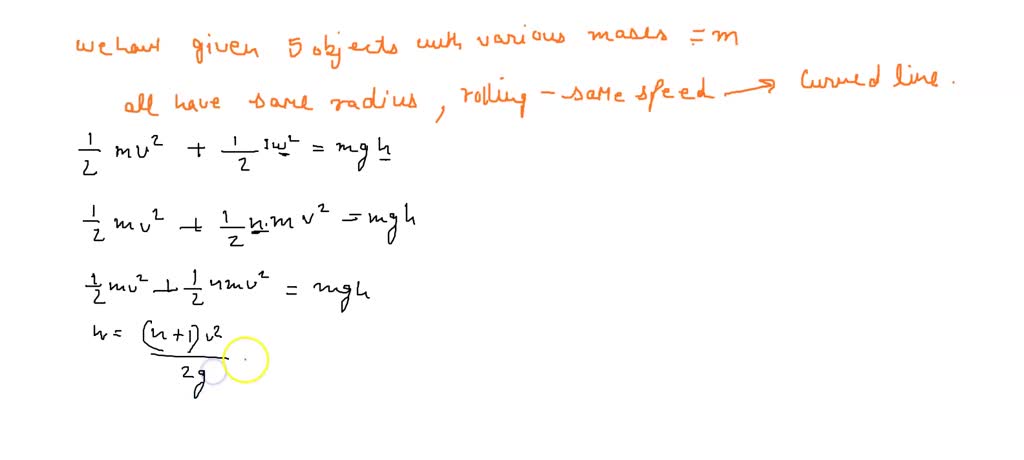 we have given 5 objects with various mases = m
all have same radius, rolling - same speed → curved line.
1/2 mv² + 1/2 Iω² = mgh
1/2 mv² + 1/2 n.m v² = mgh
1/2 mv² + 1/2 nmv² = mgh
h = (n+1)v² / 2g